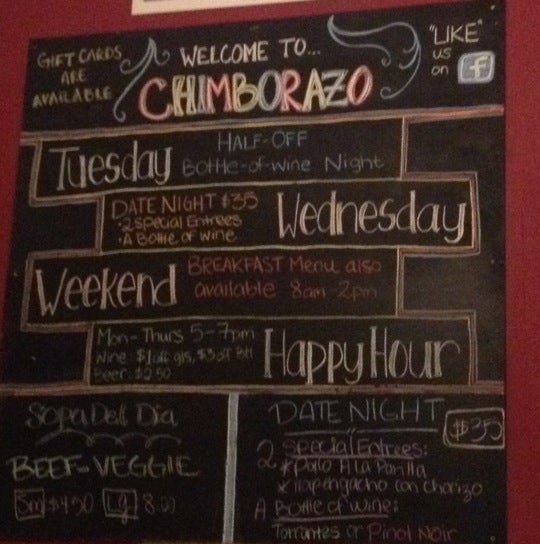 GIFT CARDS
ARE
AVAILABLE
WELCOME TO...
CHIMBORAZO
"LIKE"
us
on
f
Tuesday
HALF-OFF
Bottle-of-Wine Night
DATE NIGHT $35
• 2 Special Entrees
• A Bottle of Wine
Wednesday
Weekend
BREAKFAST Menu also
available 8am-2pm
Mon-Thurs 5-7pm
Wine: $1 off gls, $3 off Btl
Beer: $2.50
Happy Hour
Sopa Del Dia
BEEF-VEGGIE
Sm $4.50 Lg 8.00
DATE NIGHT
$35
2 Special Entrees:
* Pollo A La Parrilla
* llapingacho con chorizo
A Bottle of Wine:
Torrontes or Pinot Noir